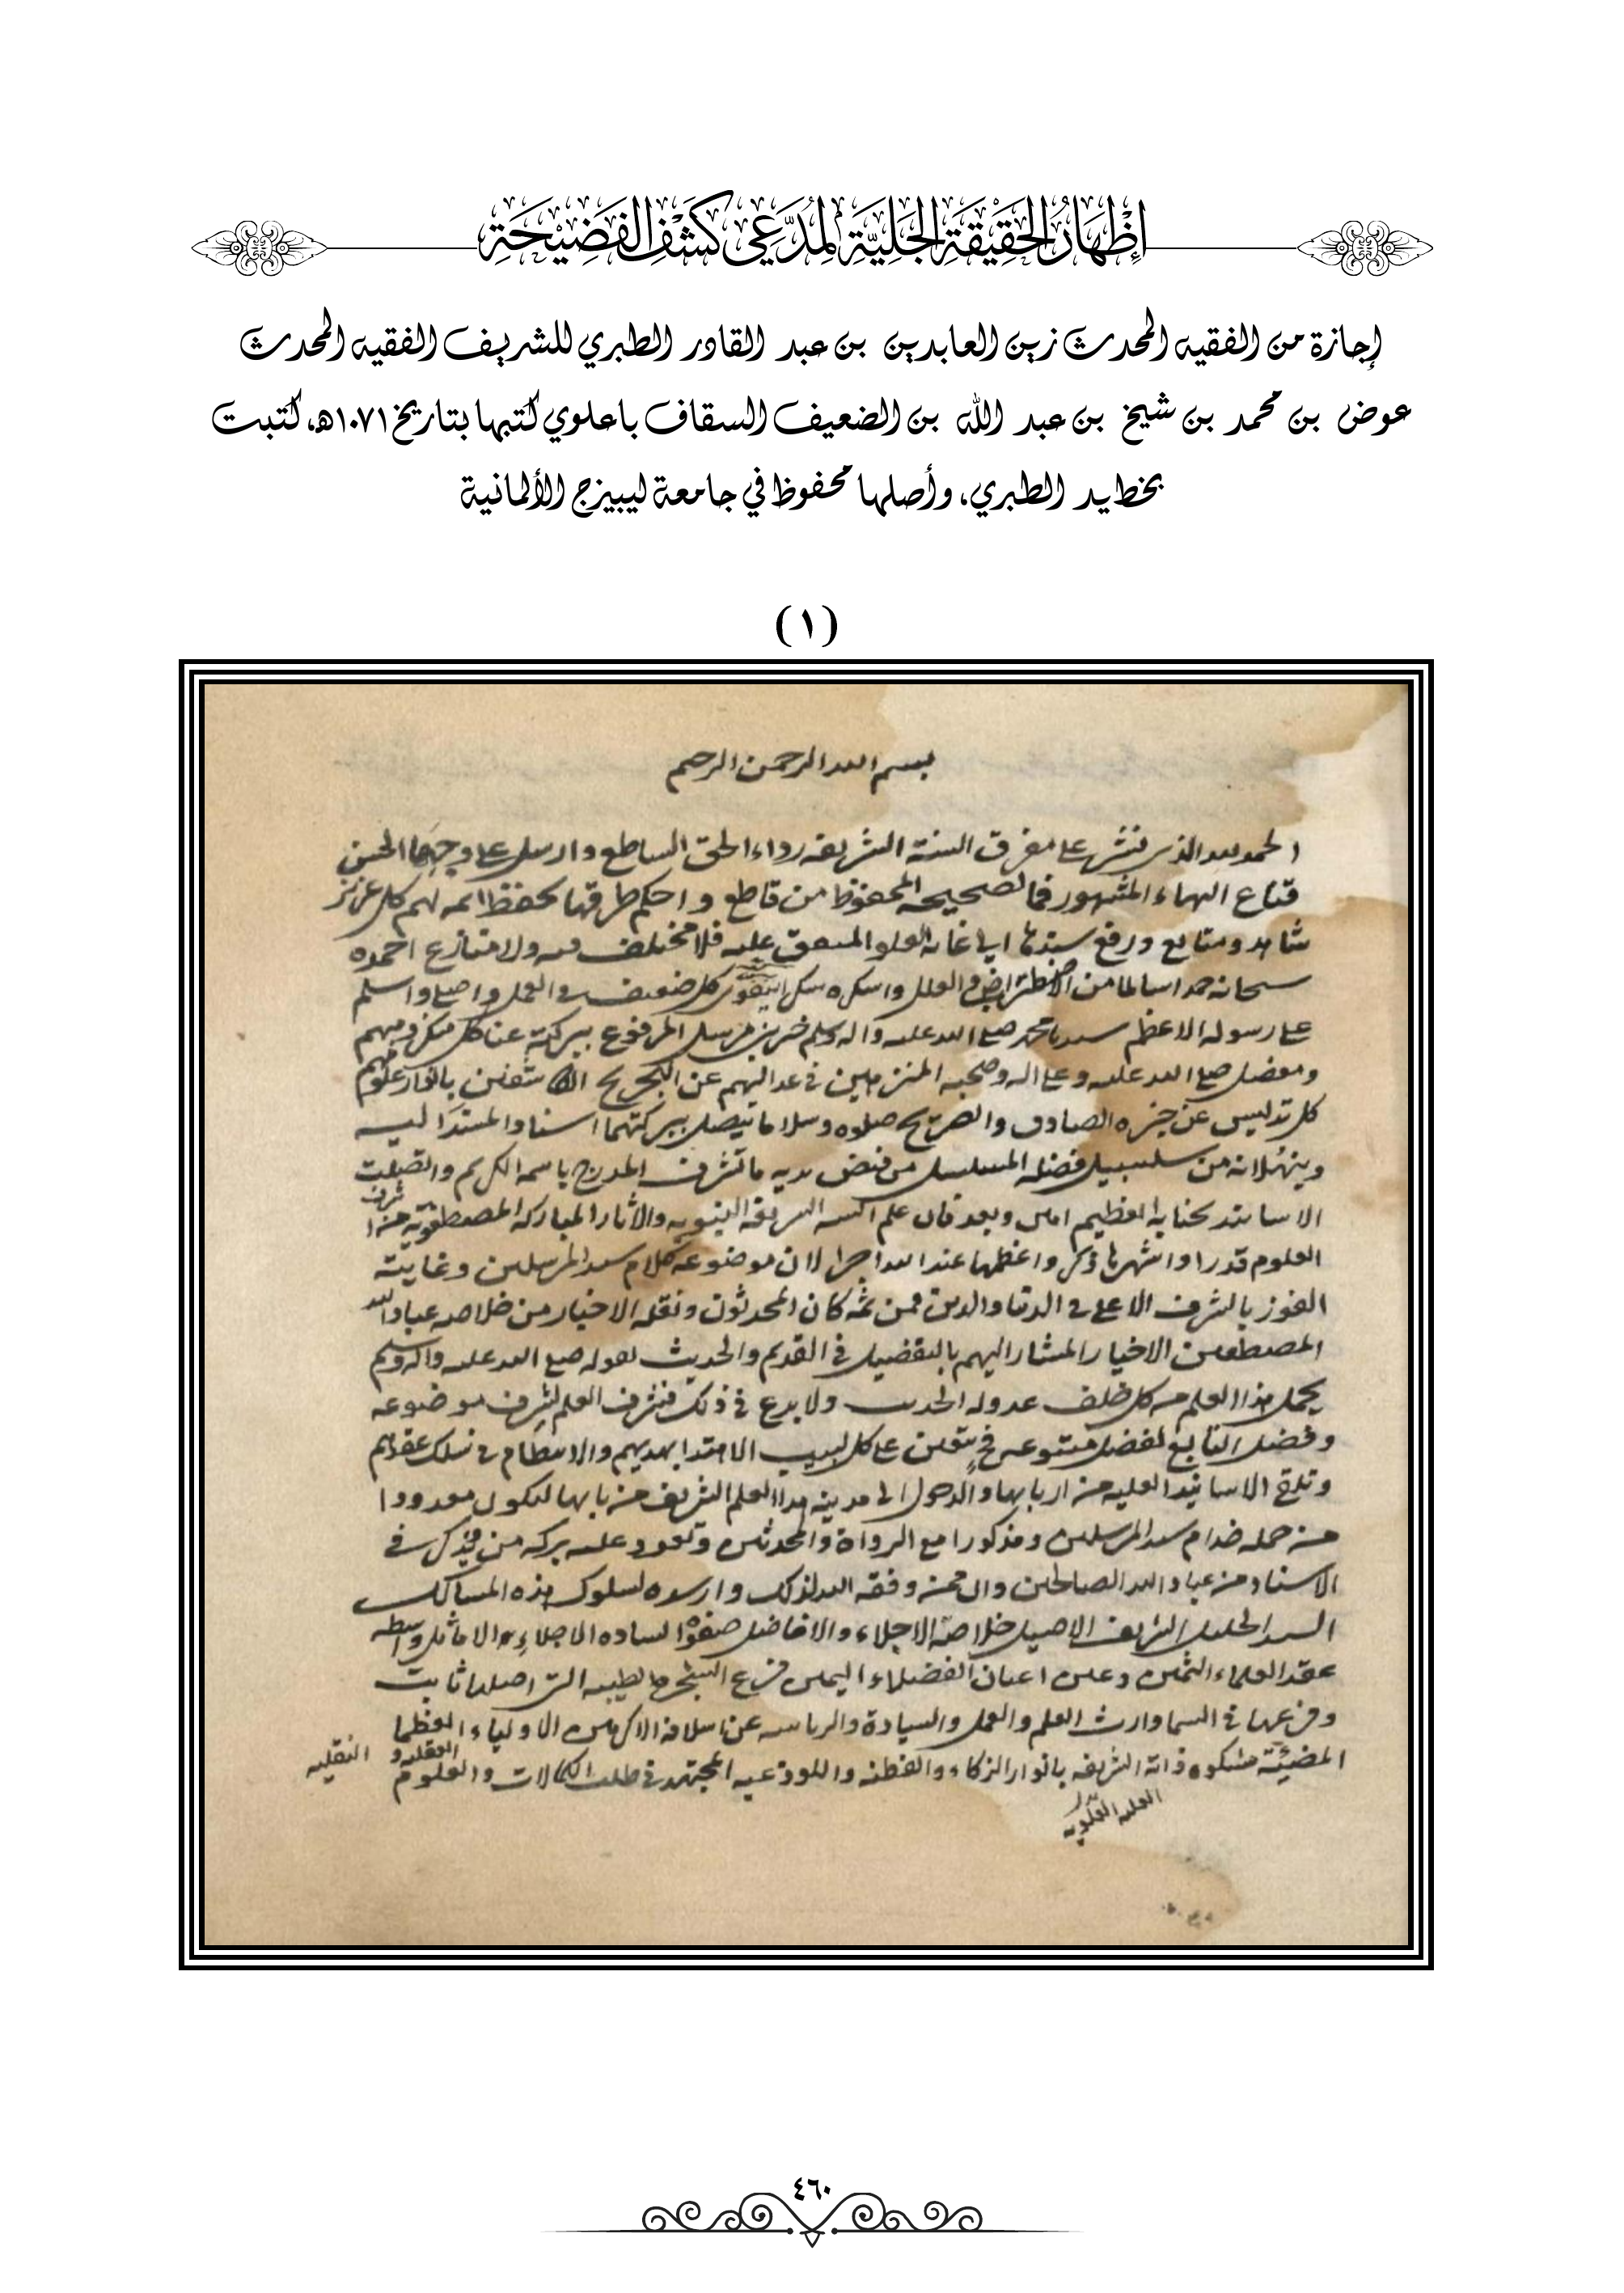 إِظْهَارُ الحَقِيْقَةِ الجَلِيَّةِ لِمُدَّعِي كَشْفِ الفَضِيْحَةِ
إجازة من الفقيه المحدث زين العابدين بن عبد القادر الطبري للشريف الفقيه المحدث
عوض بن محمد بن شيخ بن عبد الله بن الضعيف السقاف باعلوي كتبها بتاريخ ١٠٧١هـ، كتبت
بخط يد الطبري، وأصلها محفوظ في جامعة ليبيزج الألمانية
(١)
بسم الله الرحمن الرحيم
الحمد لله الذي نشر على مفرق السنة الشريفه رداء الحق الساطع وارسل على وجهها الحسن
قناع البهاء المشهور فما لصحيحه المحفوظ من قاطع واحكم طرقها بحفظ ائمه لهم كل عزيز
شاهد ومتابع ورفع سندها الى غاية العلو المتفق عليه فلا مختلف فيه ولا منازع احمده
سبحانه حمدا سالما من الاضطراب والعلل واشكره شكرا كل ضعيف في العمل واصلي واسلم
على رسوله الاعظم سيدنا محمد صلى الله عليه واله وسلم خير مرسل المرفوع ببركته عنا كل منكر ومبهم
ومعضل صلى الله عليه وعلى اله وصحبه المنزهين في عدالتهم عن التجريح بانوار علومهم
كل تدليس عن خبره الصادق والصريح صلوة وسلاما يتصل ببركتهما اسناد المستند اليه
وينهلانه من سلسبيل فضله المسلسل من فيض يديه ما تشرف المدرج باسمه الكريم واتصلت
الاسانيد بجنابه العظيم امين وبعد فان علم السنه الشريفة النبويه والاثار المباركه المصطفويه من اشرف
العلوم قدرا واشهرها ذكرا واعظمها عند الله اجرا لان موضوعه كلام سيد المرسلين وغايته
الفوز بالشرف الاعلى في الدنيا والدين فمن ثمة كان المحدثون ونقلة الاخبار من خلاصه عباد الله
المصطفين الاخيار المشار اليهم بالتفضيل في القديم والحديث لقوله صلى الله عليه واله وسلم
يحمل هذا العلم من كل خلف عدوله الحديث ولا بدع في ذلك فشرف العلم لشرف موضوعه
وفضل التابع لفضل متبوعه فيتعين على كل لبيب الاهتدا بهديهم والانتظام في سلك عقدهم
وتلقي الاسانيد العليه من اربابها والدخول الى مدينه هذا العلم الشريف من بابها ليكون معدودا
من جمله خدام سيد المرسلين ومذكورا مع الرواة والمحدثين وتعود عليه بركه من ذكر في
الاسناد من عباد الله الصالحين وان ممن وفقه الله لذلك وارشده لسلوك هذه المسالك
السيد الجليل الشريف الاصيل خلاصة الاجلاء والافاضل صفوة الساده الاجلاء والاماثل واسطه
عقد العلماء الثمين وعين اعيان الفضلاء اليمين فرع الشجره الطيبه التي اصلها ثابت
وفرعها في السما وارث العلم والعمل والسيادة والرياسه عن اسلافه الاكرمين الاولياء العظما
المضيئة مشكوة ذاته الشريفه بانوار الذكاء والفطنه واللوذعيه المجتهد في طلب الكمالات والعلوم العقليه و النقليه
العليه العلويه
٤٦٠